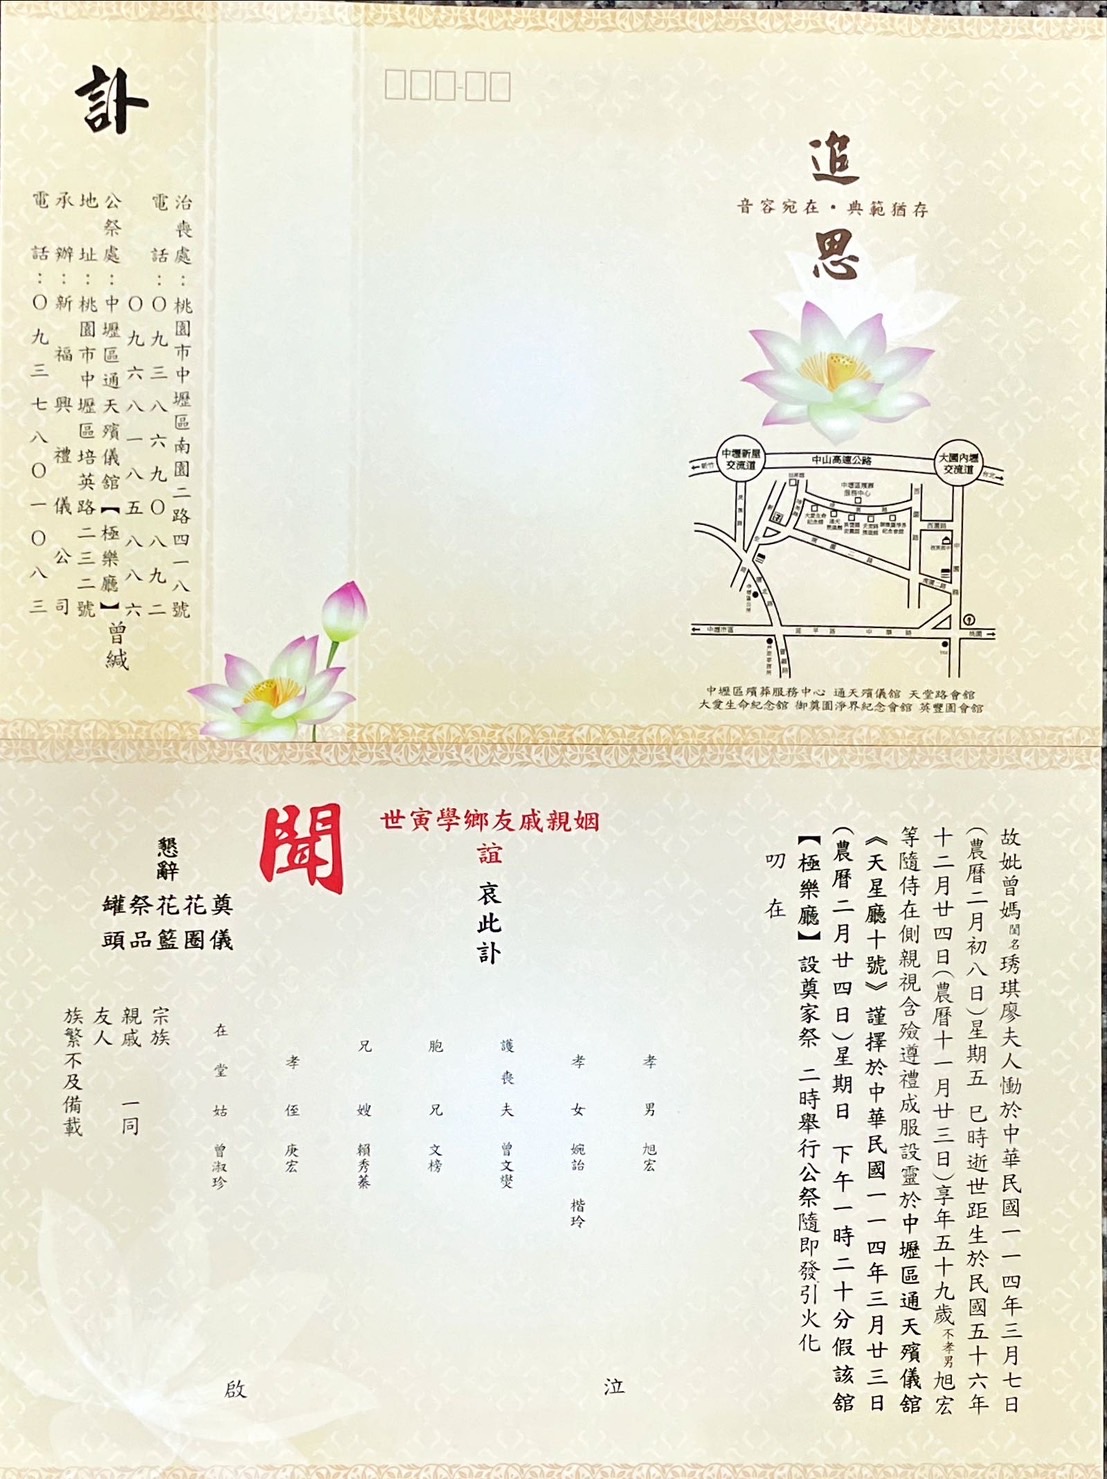 訃
治喪處：桃園市中壢區南園二路四一八號
電話：〇九三八六九〇八九二
〇九六八一八五八八六
公祭處：中壢區通天殯儀館【極樂廳】
地址：桃園市中壢區培英路二三二號
承辦：新福興禮儀公司
電話：〇九三七八〇一〇八三
曾緘
追思
音容宛在・典範猶存
中壢新屋交流道
中山高速公路
大園內壢交流道
←新竹
台北→
中壢區殯葬服務中心
大愛生命紀念館
西園路
←中壢市區
延平路
中華路
桃園→
中壢區殯葬服務中心 通天殯儀館 天堂路會館
大愛生命紀念館 御奠園淨界紀念會館 英豐園會館
故妣曾媽閨名琇琪廖夫人慟於中華民國一一四年三月七日
（農曆二月初八日）星期五 巳時逝世距生於民國五十六年
十二月廿四日（農曆十一月廿三日）享年五十九歲不孝男旭宏
等隨侍在側親視含殮遵禮成服設靈於中壢區通天殯儀館
《天星廳十號》謹擇於中華民國一一四年三月廿三日
（農曆二月廿四日）星期日 下午一時二十分假該館
【極樂廳】設奠家祭 二時舉行公祭隨即發引火化
叨在
姻親戚友鄉學寅世
誼
哀此訃
聞
懇辭
奠儀
花圈
花籃
祭品
罐頭
孝男 旭宏
孝女 婉詒 楷玲
護喪夫 曾文燮
胞兄 文榜
兄嫂 賴秀蓁
孝侄 庚宏
在堂姑 曾淑珍
泣
啟
宗族
親戚 一同
友人
族繁不及備載